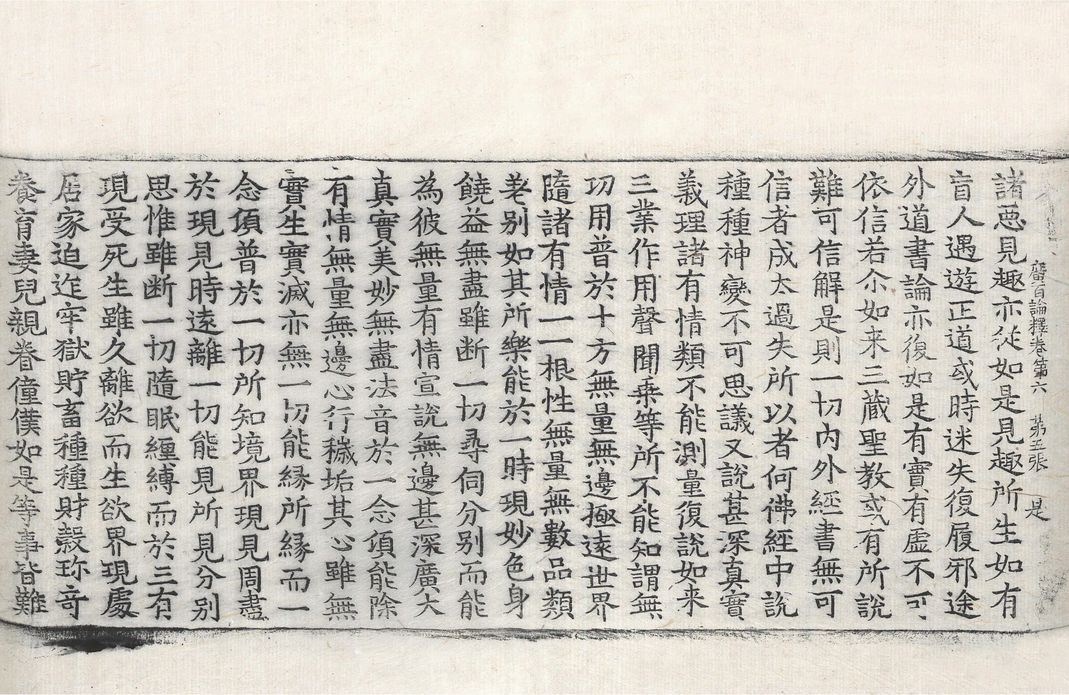 廣百論釋卷第六 第五張 是
諸惡見趣亦從如是見趣所生如有
盲人遇遊正道或時迷失復履邪途
外道書論亦復如是有實有虛不可
依信若尒如来三蔵聖教或有所說
難可信解是則一切内外經書無可
信者成太過失所以者何佛經中說
種種神變不可思議又說甚深真實
義理諸有情類不能測量復說如来
三業作用聲聞乗等所不能知謂無
功用普於十方無量無邊極遠世界
隨諸有情一一根性無量無數品類
差别如其所樂能於一時現妙色身
饒益無盡雖断一切尋伺分别而能
為彼無量有情宣說無邊甚深廣大
真實美妙無盡法音於一念頃能除
有情無量無邊心行穢垢其心雖無
實生實滅亦無一切能緣所緣而一
念頃普於一切所知境界現見周盡
於現見時遠離一切能見所見分别
思惟雖断一切隨眠纏縛而於三有
現受死生雖久離欲而生欲界現處
居家迫迮牢獄貯畜種種財糓珎奇
養育妻兒親眷僮僕如是等事皆難